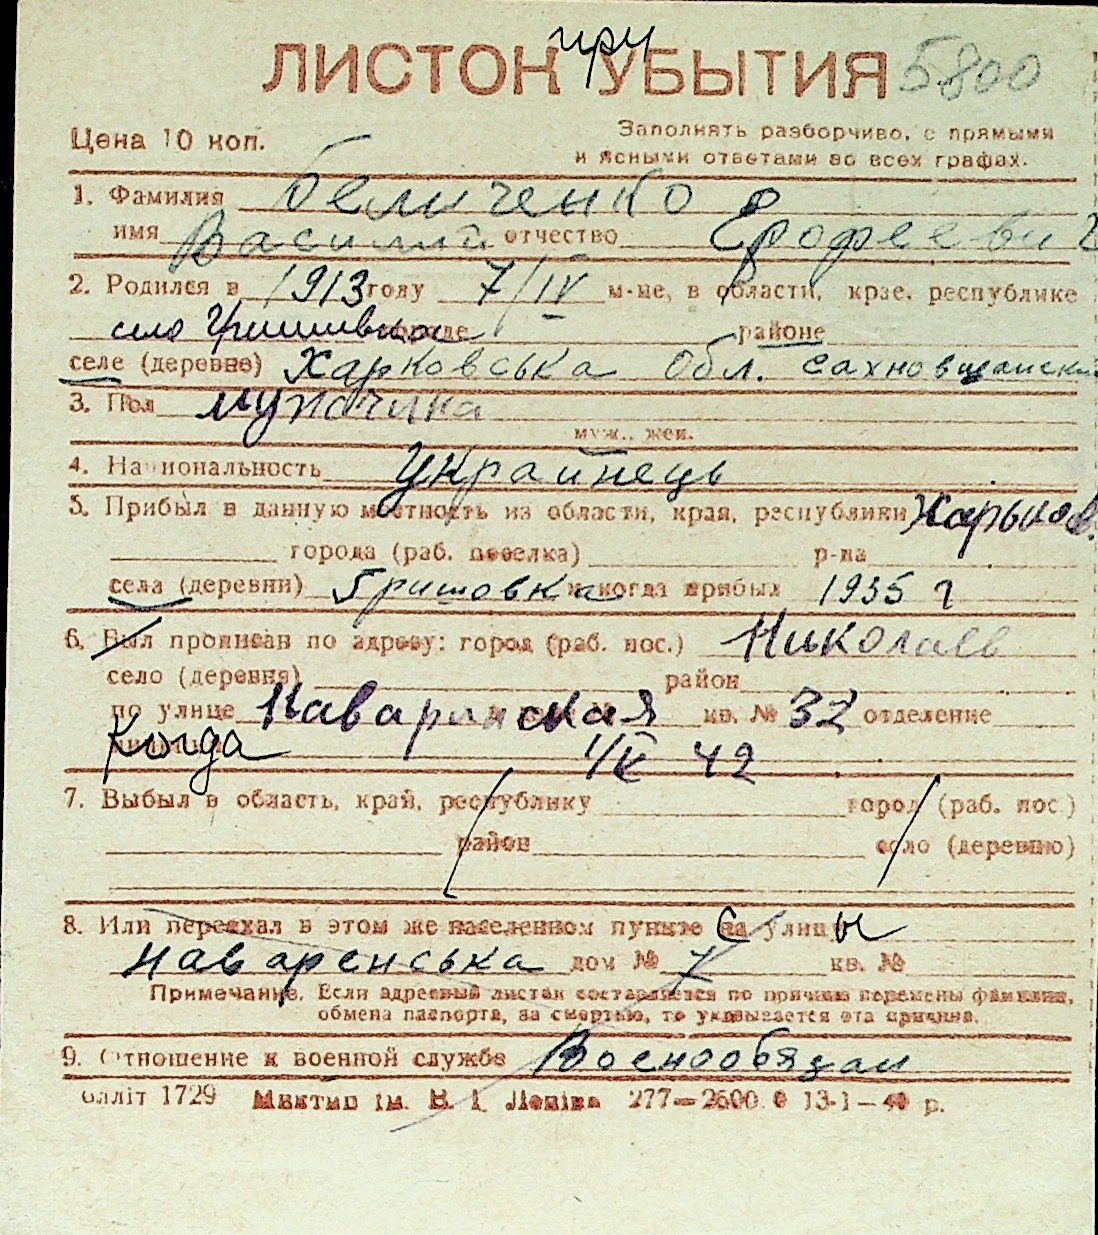 ЛИСТОК при УБЫТИЯ 5800
Цена 10 коп.
Заполнять разборчиво, с прямыми
и ясными ответами во всех графах.
1. Фамилия Беличенко
имя Василий отчество Ерофеевич
2. Родился в 1913 году 7/IV м-це, в области, крае, республике
село Гришивка городе районе
селе (деревне) Харковська обл. Сахновщански
3. Пол мужчина
муж., жен.
4. Национальность Украйнець
5. Прибыл в данную местность из области, края, республики Харьков.
города (раб. поселка) р-на
села (деревни) Гришовка и когда прибыл 1935 г
6. Был прописан по адресу: город (раб. пос.) Николаев
село (деревня) район
по улице Наваринская кв. № 32 отделение
Когда 1/IV 42
7. Выбыл в область, край, республику город (раб. пос.)
район село (деревню)
8. Или переехал в этом же населенном пункте на с улицы
Наваренська дом № 7 кв. №
Примечание. Если адресный листок составляется по причине перемены фамилии,
обмена паспорта, за смертью, то указывается эта причина.
9. Отношение к военной службе Военообязан
блліт 1729 Миктип ім. В. І. Леніна 277—2600 13-1—40 р.